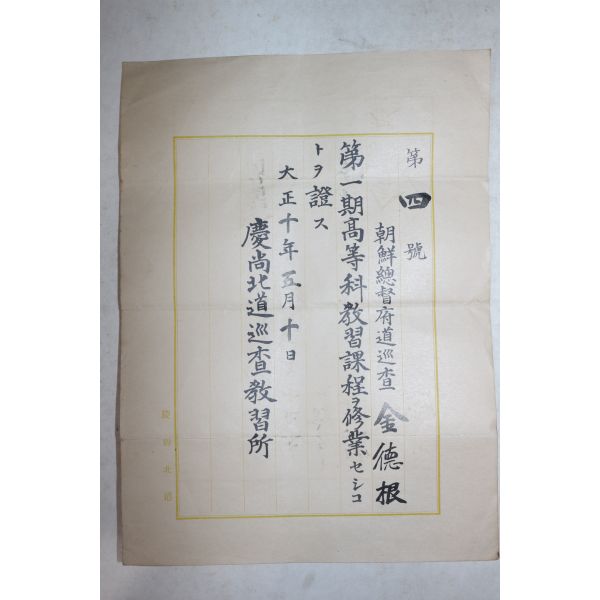 第四號
朝鮮總督府道巡査 金德根
第一期高等科教習課程ヲ修業セシコ
トヲ證ス
大正十年五月十日
慶尚北道巡查教習所
慶尙北道